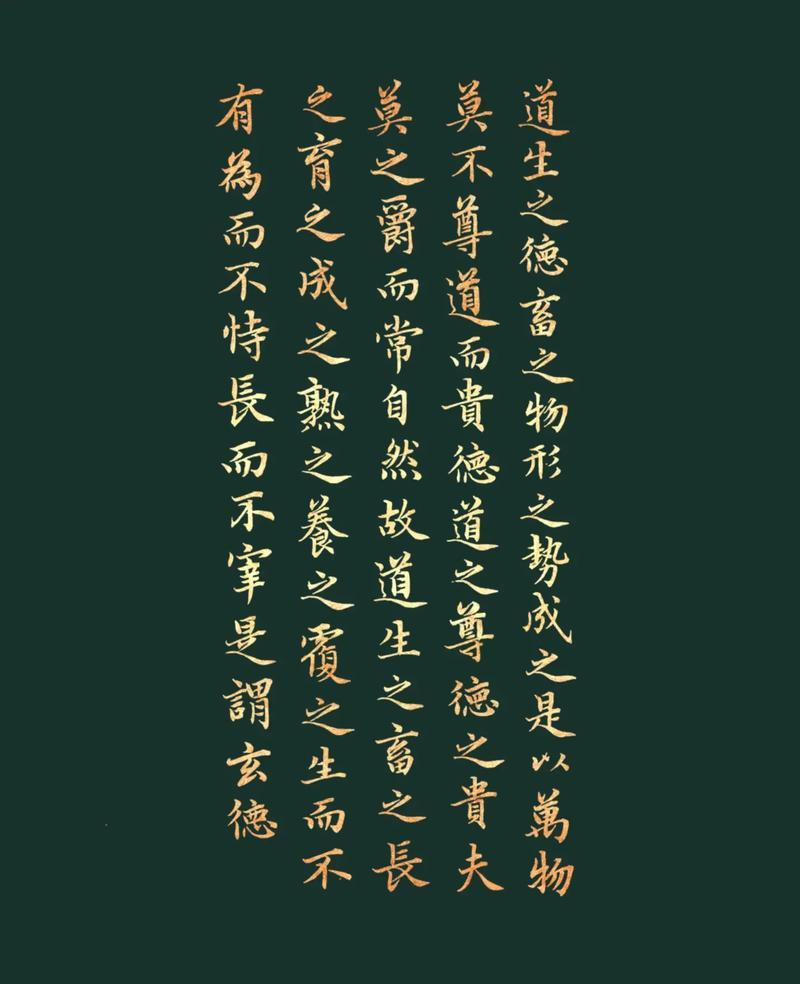 道生之德畜之物形之勢成之是以萬物
莫不尊道而貴德道之尊德之貴夫
莫之爵而常自然故道生之畜之長
之育之成之熟之養之覆之生而不
有為而不恃長而不宰是謂玄德